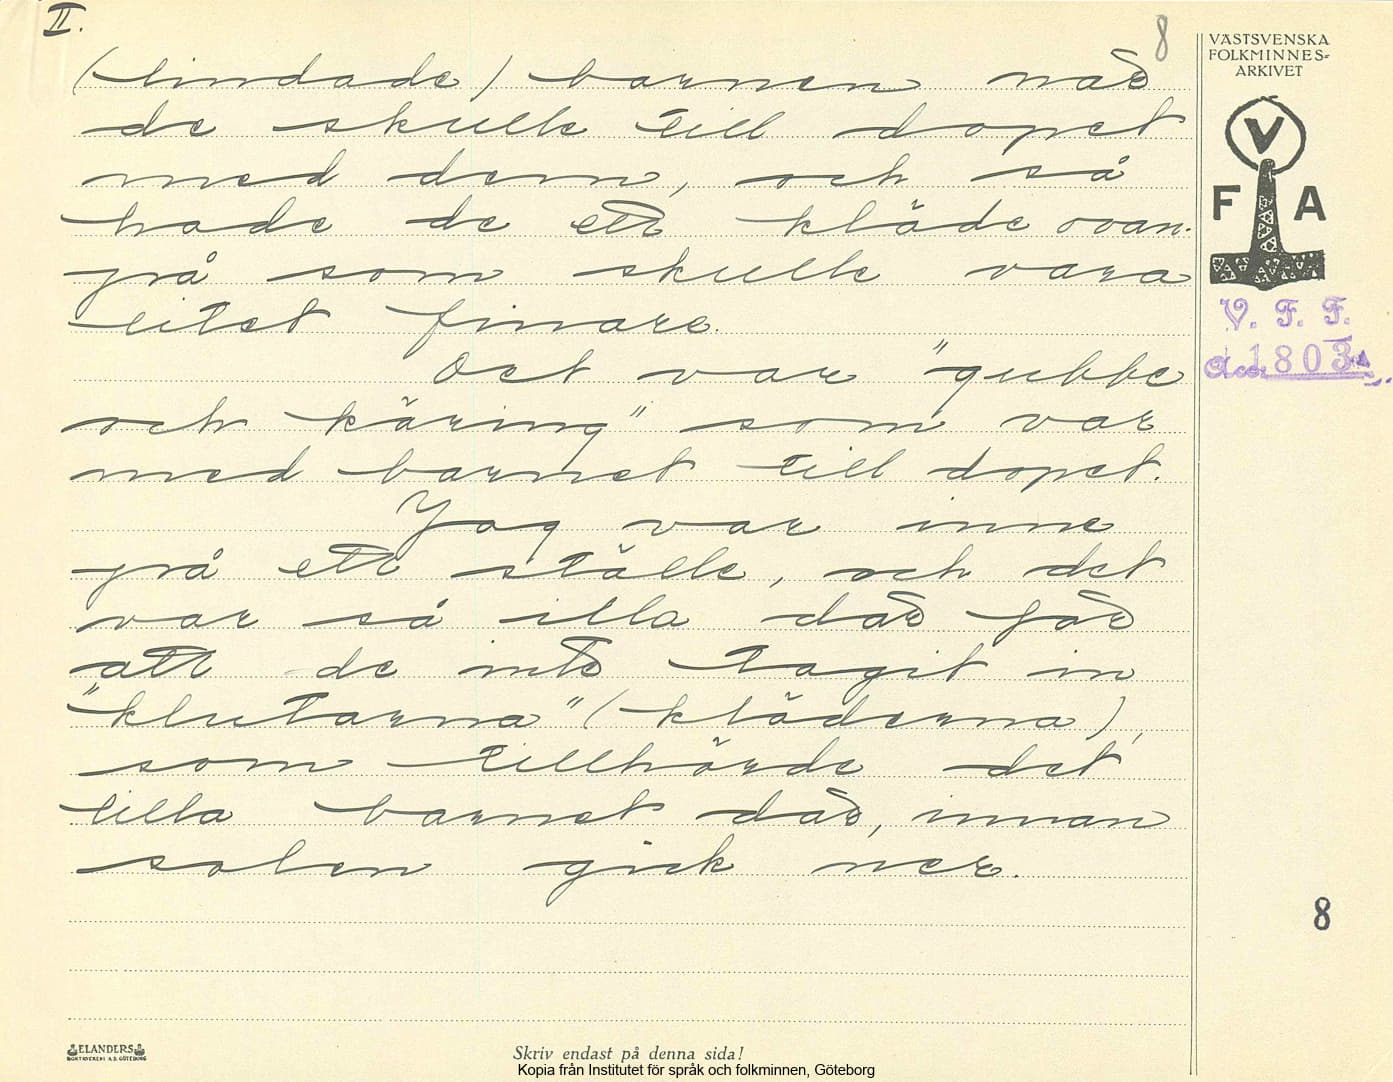 II.
8
VÄSTSVENSKA
FOLKMINNES-
ARKIVET
V
F A
V. F. F.
Acc. 1803
(lindade) barnen når
de skulle till dopet
med dem, och så
hade de ett kläde ovan-
på som skulle vara
litet finare.
Det var "gubbe
och käring" som var
med barnet till dopet.
Jag var inne
på ett ställe, och det
var så illa där för
att de inte tagit in
"klutarna" (kläderna),
som tillhörde det
lilla barnet där, innan
solen gick ner.
8
ELANDERS
BOKTRYCKERI A.B. GÖTEBORG
Skriv endast på denna sida!
Kopia från Institutet för språk och folkminnen, Göteborg